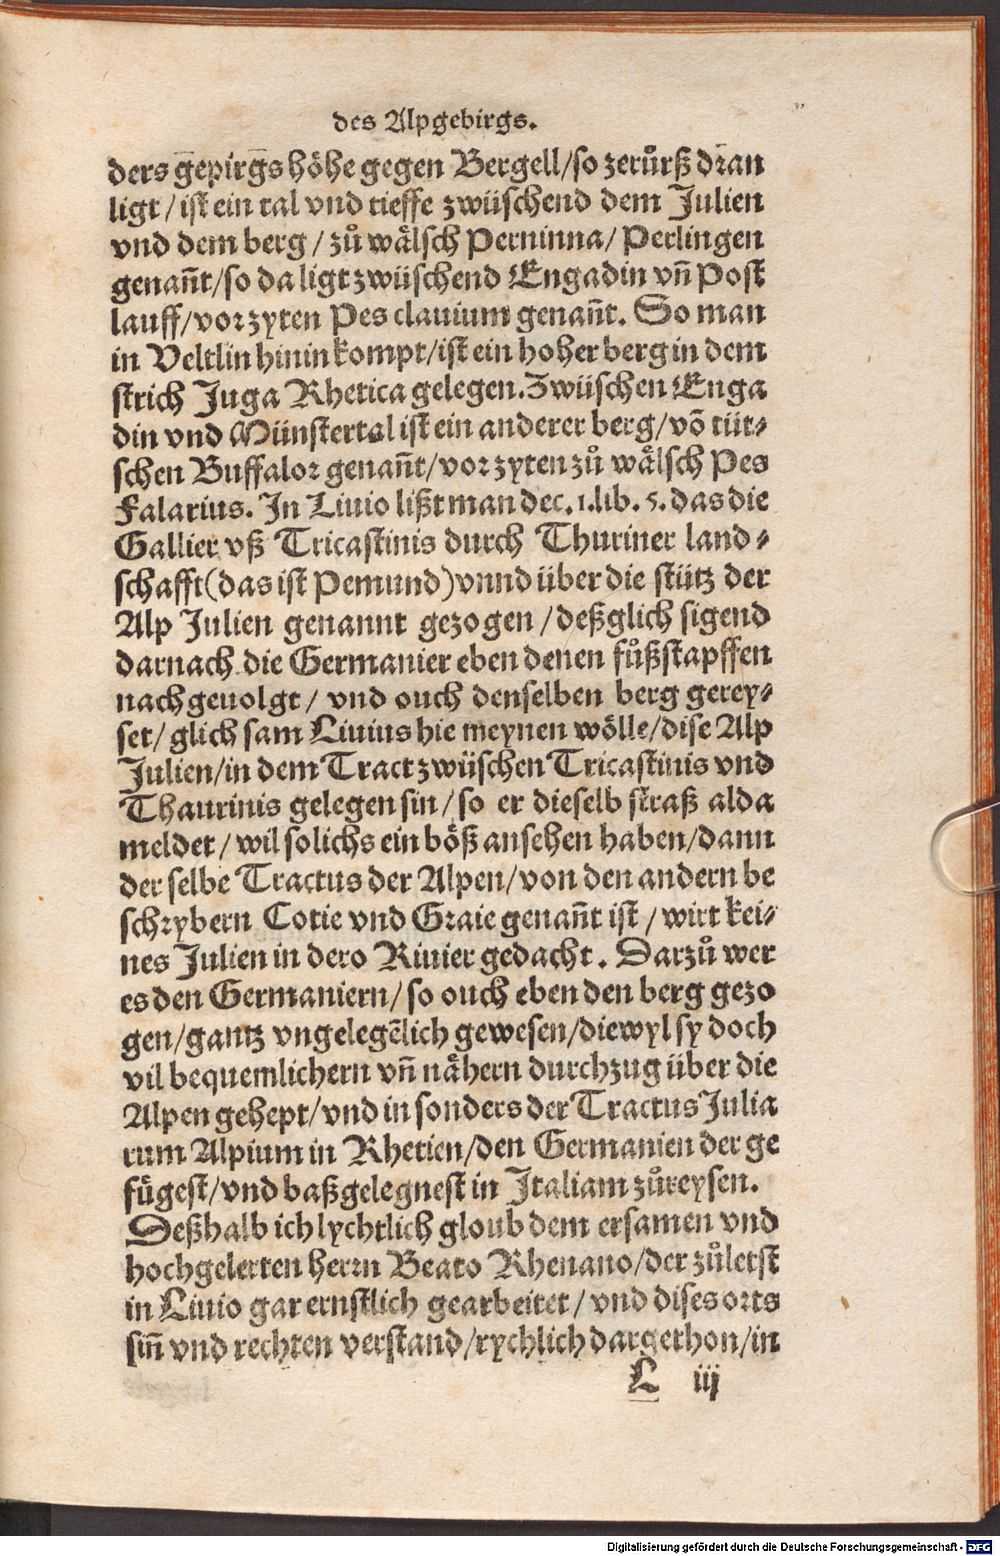 des Alpgebirgs.
ders gēpirgs höhe gegen Bergell/so zerůrß dran
ligt/ist ein tal vnd tieffe zwüschend dem Julien
vnd dem berg/zů wälsch Perninna/Perlingen
genañt/so da ligt zwüschend Engadin vñ Post
lauff/vor zyten Pes clauium genañt. So man
in Veltlin hinin kompt/ist ein hoher berg in dem
strich Juga Rhetica gelegen. Zwüschen Enga
din vnd Münstertal ist ein anderer berg/võ tüt-
schen Buffalor genañt/vor zyten zů wälsch Pes
Falarius. In Liuio lißt man dec. 1. lib. 5. das die
Gallier vß Tricastinis durch Thuriner land-
schafft (das ist Pemund) vnnd über die stütz der
Alp Julien genannt gezogen/deßglich sigend
darnach die Germanier eben denen fůßstapffen
nachgeuolgt/vnd ouch denselben berg gerey-
set/glich sam Liuius hie meynen wölle/dise Alp
Julien/in dem Tract zwüschen Tricastinis vnd
Thaurinis gelegen sin/so er dieselb straß alda
meldet/wil solichs ein böß ansehen haben/dann
der selbe Tractus der Alpen/von den andern be
schrybern Cotie vnd Graie genañt ist/wirt kei-
nes Julien in dero Riuier gedacht. Darzů wer
es den Germaniern/so ouch eben den berg gezo
gen/gantz vngelegēlich gewesen/diewyl sy doch
vil bequemlichern vñ nähern durchzug über die
Alpen gehept/vnd in sonders der Tractus Julia
rum Alpium in Rhetien/den Germanien der ge
fügest/vnd baßgelegnest in Italiam zůreysen.
Deßhalb ich lychtlich gloub dem ersamen vnd
hochgelerten herrn Beato Rhenano/der zůletst
in Liuio gar ernstlich gearbeitet/vnd dises orts
siñ vnd rechten verstand/rychlich dargethon/in
L iij
Digitalisierung gefördert durch die Deutsche Forschungsgemeinschaft - DFG